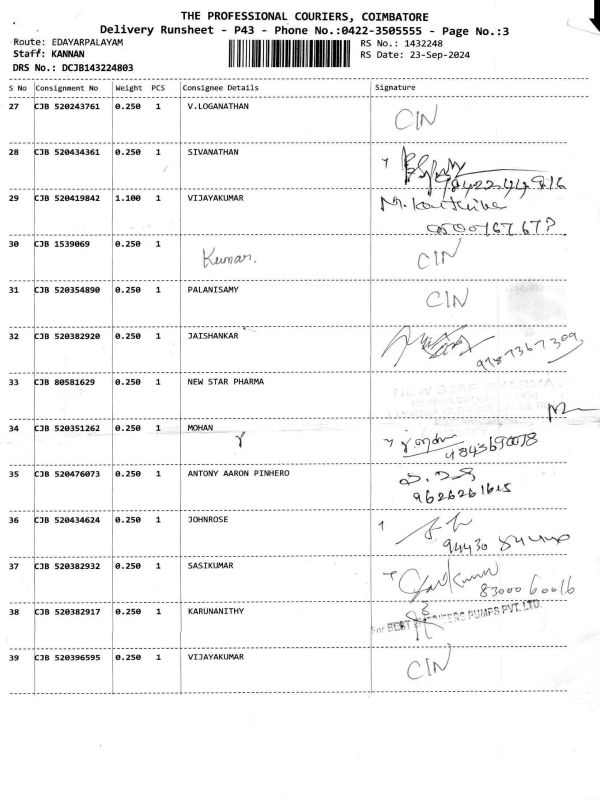 THE PROFESSIONAL COURIERS, COIMBATORE
Delivery Runsheet - P43 - Phone No.:0422-3505555 - Page No.:3
Route: EDAYARPALAYAM RS No.: 1432248
Staff: KANNAN RS Date: 23-Sep-2024
DRS No.: DCJB143224803
S No Consignment No Weight PCS Consignee Details Signature
27 CJB 520243761 0.250 1 V.LOGANATHAN CIN
28 CJB 520434361 0.250 1 SIVANATHAN
29 CJB 520419842 1.100 1 VIJAYAKUMAR
30 CJB 1539069 0.250 1 Kumar. CIN
31 CJB 520354890 0.250 1 PALANISAMY CIN
32 CJB 520382920 0.250 1 JAISHANKAR 9787367309
33 CJB 80581629 0.250 1 NEW STAR PHARMA NEW STAR PHARMA
34 CJB 520351262 0.250 1 MOHAN
35 CJB 520476073 0.250 1 ANTONY AARON PINHERO
36 CJB 520434624 0.250 1 JOHNROSE
37 CJB 520382932 0.250 1 SASIKUMAR 8300060016
38 CJB 520382917 0.250 1 KARUNANITHY For BEST PUMPS PVT. LTD.
39 CJB 520396595 0.250 1 VIJAYAKUMAR CIN